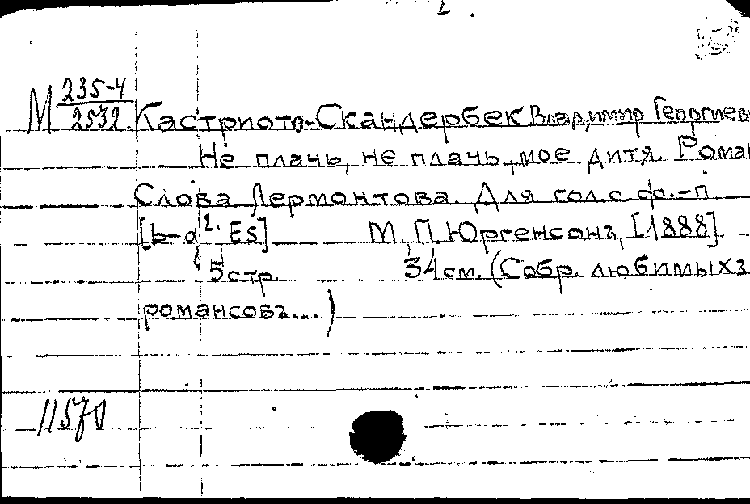 М 235-4
2532
Кастриото-Скандербек Владимир Георгиев
Не плачь, не плачь, мое дитя. Роман
Слова Лермонтова. Для гол. с ф.-п
[b-a². Es] М., П. Юргенсонъ, [1888].
5 стр. 34 см. (Собр. любимыхъ
романсовъ...)